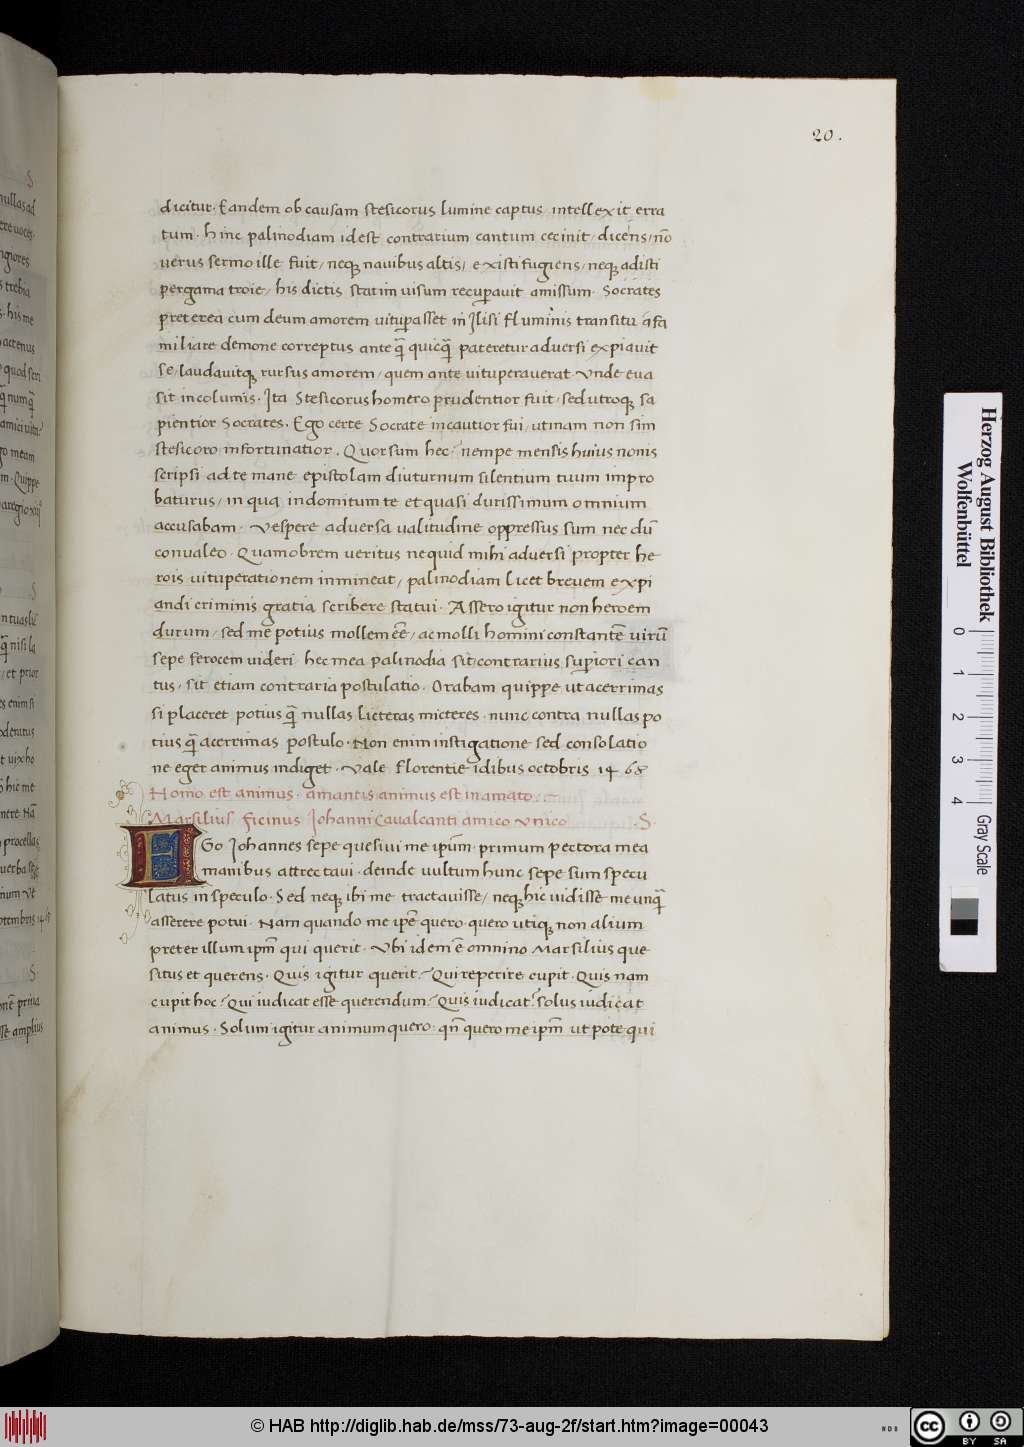 20.
dicitur. Eandem ob causam stesicorus lumine captus intellexit erra
tum. hinc palinodiam idest contrarium cantum cecinit, dicens, nō
verus sermo ille fuit, neqꝫ navibus altis, existi fugiens, neqꝫ adisti
pergama troie, his dictis statim visum recuꝑavit amissum. Socrates
preterea cum deum amorem vituꝑasset in Ilisi fluminis transitu a fa
miliare demone correptus ante qꝫ̄ quicqꝫ̄ pateretur adversi expiavit
se, laudavitqꝫ rursus amorem, quem ante vituperaverat unde eva
sit incolumis. Ita Stesicorus homero prudentior fuit, sed utroqꝫ sa
pientior Socrates. Ego certe Socrate incautior fui, utinam non sim
stesicoro infortunatior. Quorsum hec? nempe mensis huius nonis
scripsi ad te mane epistolam diuturnum silentium tuum impro
baturus, in qua indomitum te et quasi durissimum omnium
accusabam. Vespere adversa valitudine oppressus sum nec dū
convaleo. Quamobrem veritus nequid mihi adversi propter he
rois vituperationem inmineat, palinodiam licet brevem expi
andi criminis gratia scribere statui. Assero igitur non heroem
durum, sed me potius mollem eē, ac molli homini constantē virū
sepe ferocem videri. hec mea palinodia sit contrarius suꝑiori can
tus. sit etiam contraria postulatio. Orabam quippe ut acerrimas
si placeret potius qꝫ̄ nullas licteras micteres. nunc contra nullas po
tius qꝫ̄ acerrimas postulo. Non enim instigatione sed consolatio
ne eger animus indiget. Vale Florentie idibus octobris 1468
Homo est animus. amantis animus est in amato.
Marsilius ficinus Johanni Cavalcanti amico unico .S.
EGo Johannes sepe quesivi me ip̄m. primum pectora mea
manibus attrectavi. deinde vultum hunc sepe sum specu
latus in speculo. Sed neqꝫ ibi me tractavisse, neqꝫ hic vidisse me unqꝫ̄
asserere potui. Nam quando me ip̄e quero. quero utiqꝫ non alium
preter illum ip̄m qui querit. Ubi idem ē omnino Marsilius que
situs et querens. Quis igitur querit? Qui reperire cupit. Quis nam
cupit hoc? Qui iudicat esse querendum? Quis iudicat? solus iudicat
animus. Solum igitur animum quero. qn̄ quero me ip̄m ut pote qui
Herzog August Bibliothek
Wolfenbüttel
0 1 2 3 4
Gray Scale
© HAB http://diglib.hab.de/mss/73-aug-2f/start.htm?image=00043
WDB
cc BY SA